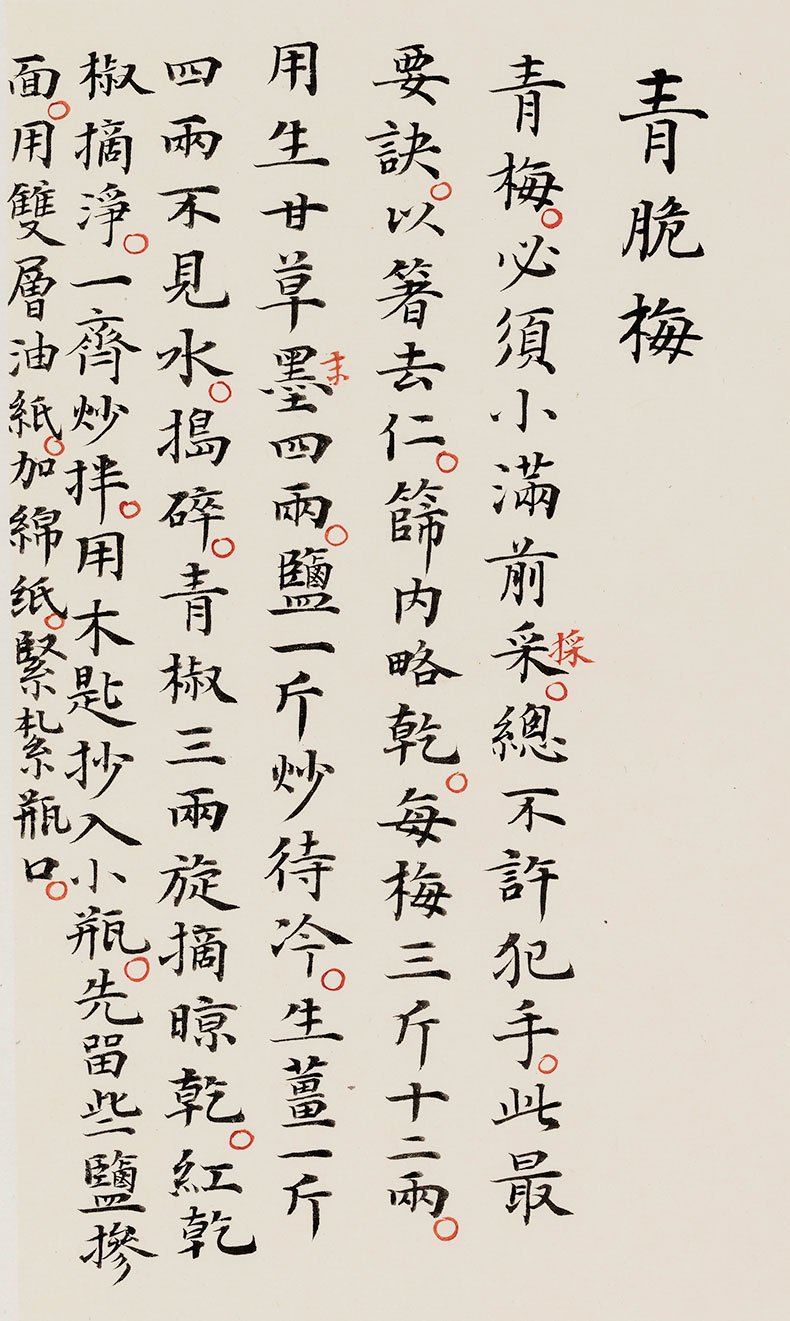 青脆梅
青梅。必須小滿前采採。總不許犯手。此最
要訣。以箸去仁。篩内略乾。每梅三斤十二兩。
用生甘草墨末四兩。鹽一斤炒待冷。生薑一斤
四兩不見水。搗碎。青椒三兩旋摘晾乾。紅乾
椒摘淨。一齊炒拌。用木匙抄入小瓶。先留些鹽摻
面。用雙層油紙。加綿紙。緊紮瓶口。